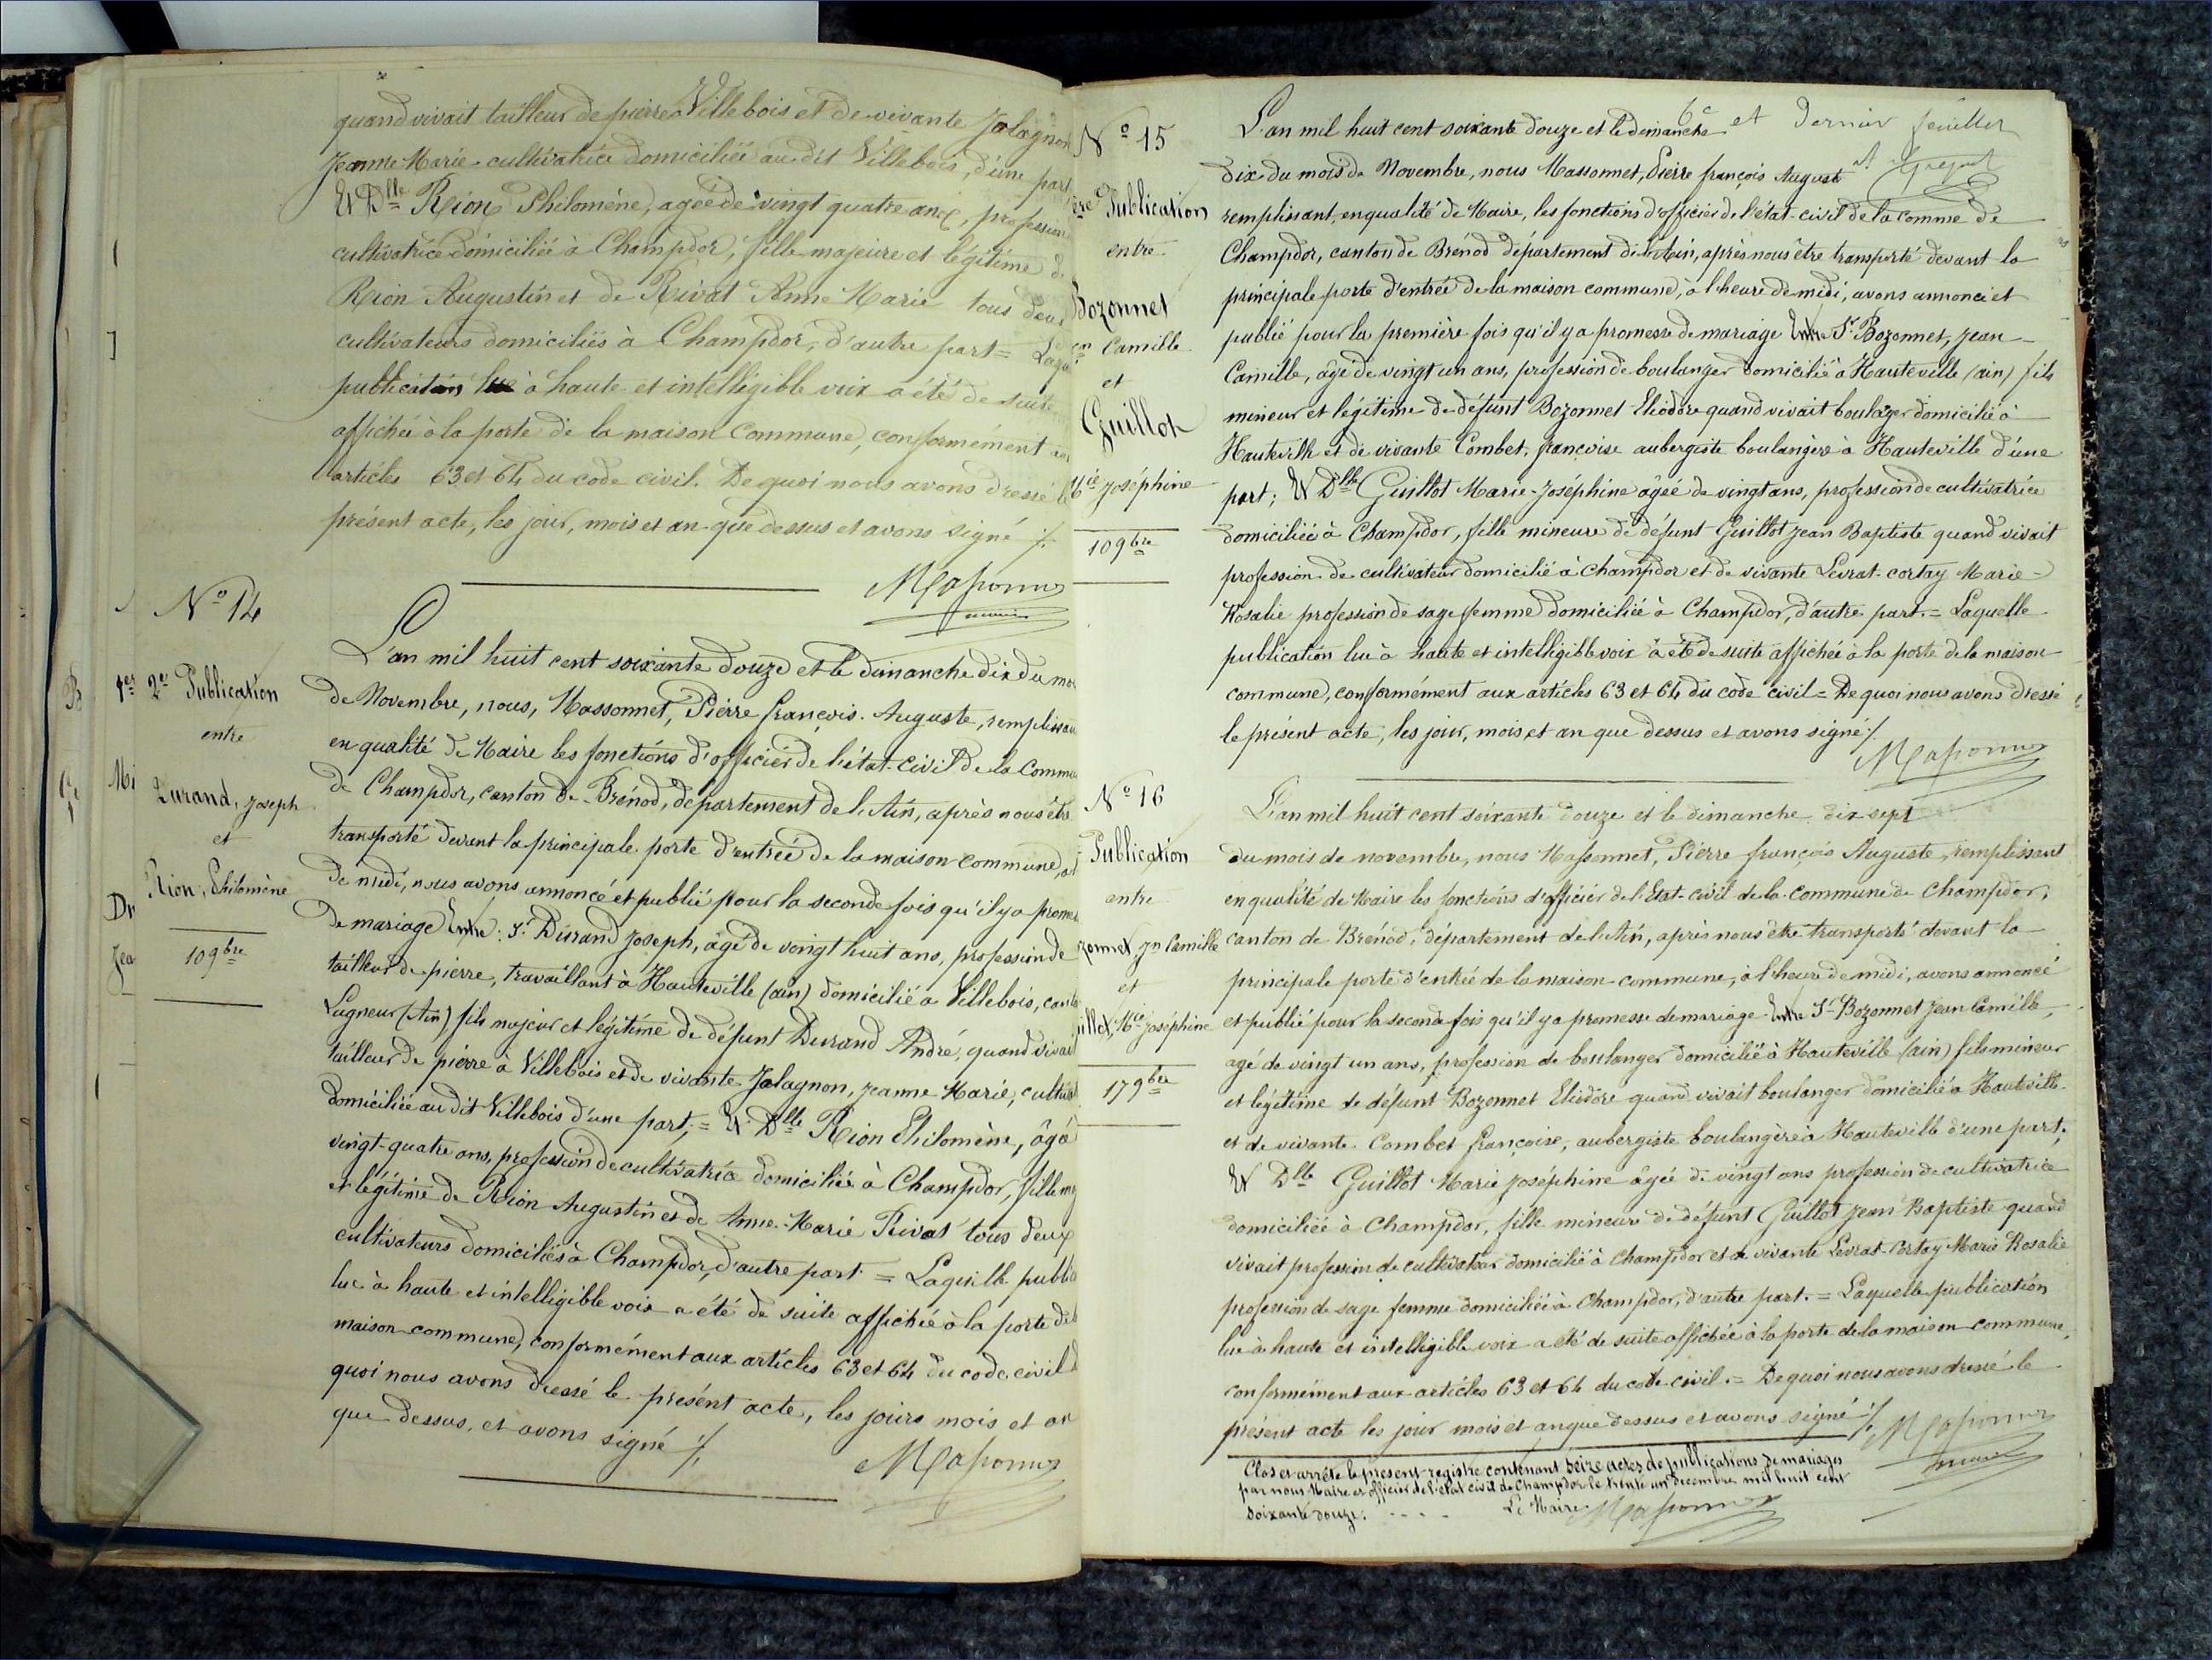 quand vivait tailleur de pierre à Villebois et de vivante Jalagnon
Jeanne Marie cultivatrice domiciliée au dit Villebois, d'une part
Et Dlle Rion Philomène, agée de vingt quatre ans, profession
cultivatrice domiciliée à Champdor, fille majeure et légitime de
Rion Augustin et de Rivat Anne Marie tous deux
cultivateurs domiciliés à Champdor, d'autre part =
publication lue à haute et intelligible voix a été de suite
affichée à la porte de la maison Commune, conformément aux
articles 63 et 64 du code civil. De quoi nous avons dressé le
présent acte, les jour, mois et an que dessus et avons signé ./.
Massonnet
maire
No 14
2e Publication
entre
Durand, Joseph
et
Rion, Philomène
10 9bre
L'an mil huit cent soixante douze et le dimanche dix du mois
de Novembre, nous, Massonnet, Pierre françois Auguste, remplissant
en qualité de Maire les fonctions d'officier de l'état-civil de la Commune
de Champdor, canton de Brénod, département de l'Ain, après nous être
transporté devant la principale porte d'entrée de la maison commune, à l
de midi, nous avons annoncé et publié pour la seconde fois qu'il y a promesse
de mariage Entre: Sr Durand Joseph, âgé de vingt huit ans, profession de
tailleur de pierre, travaillant à Hauteville (ain) domicilié à Villebois, canton
Lagneux (Ain) fils majeur et légitime de défunt Durand André, quand vivait
tailleur de pierre à Villebois et de vivante Jalagnon, Jeanne Marie, cultiv
domiciliée au dit Villebois d'une part; = Et Dlle Rion Philomène, âgée
vingt-quatre ans, profession de cultivatrice domiciliée à Champdor, fille maj
et légitime de Rion Augustin et de Anne-Marie Rivat tous deux
cultivateurs domiciliés à Champdor, d'autre part = Laquelle public
lue à haute et intelligible voix a été de suite affichée à la porte de l
maison commune, conformément aux articles 63 et 64 du code civil d
quoi nous avons dressé le présent acte, les jours mois et an
que dessus, et avons signé ./.
Massonnet
6e et Dernier feuillet
No 15
1ère Publication
entre
Bozonnet
Jn Camille
et
Guillot
Mie Joséphine
10 9bre
L'an mil huit cent soixante douze et le dimanche
dix du mois de Novembre, nous Massonnet, Pierre françois Auguste
remplissant, en qualité de Maire, les fonctions d'officier de l'état-civil de la comme de
Champdor, canton de Brénod département de l'Ain, après nous être transporté devant la
principale porte d'entrée de la maison commune, à l'heure de midi, avons annoncé et
publié pour la première fois qu'il y a promesse de mariage Entre Sr Bozonnet, Jean
Camille, âgé de vingt un ans, profession de boulanger domicilié à Hauteville (ain) fils
mineur et légitime de défunt Bozonnet Eliodore quand vivait boulager domicilié à
Hauteville et de vivante Combet, françoise aubergiste boulangère à Hauteville d'une
part; Et Dlle Guillot Marie-Joséphine âgée de vingt ans, profession de cultivatrice
domiciliée à Champdor, fille mineure de défunt Guillot Jean Baptiste quand vivait
profession de cultivateur domicilié à Champdor et de vivante Levrat-cortay Marie-
Rosalie profession de sage femme domiciliée à Champdor, d'autre part. = Laquelle
publication lue à haute et intelligible voix a été de suite affichée à la porte de la maison
commune, conformément aux articles 63 et 64 du code civil = De quoi nous avons dressé
le présent acte, les jour, mois et an que dessus et avons signé ./.
Massonnet
No 16
Publication
entre
zonnet, Jn Camille
et
illot, Mie Joséphine
17 9bre
L'an mil huit cent soixante douze et le dimanche dix sept
du mois de novembre, nous Massonnet, Pierre françois Auguste, remplissant
en qualité de Maire les fonctions d'officier de l'Etat-civil de la Commune de Champdor,
canton de Brénod, département de l'Ain, après nous être transporté devant la
principale porte d'entrée de la maison commune, à l'heure de midi, avons annoncé
et publié pour la seconde fois qu'il y a promesse de mariage Entre Sr Bozonnet Jean Camille,
agé de vingt un ans, profession de boulanger domicilié à Hauteville (ain) fils mineur
et légitime de défunt Bozonnet Eliodore quand vivait boulanger domicilié à Hauteville
et de vivante Combet françoise, aubergiste boulangère à Hauteville d'une part;
Et Dlle Guillot Marie Joséphine âgée de vingt ans profession de cultivatrice
domiciliée à Champdor, fille mineure de défunt Guillot Jean Baptiste quand
vivait profession de cultivateur domicilié à Champdor et de vivante Levrat-Cortay Marie Rosalie
profession de sage femme domiciliée à Champdor, d'autre part. = Laquelle publication
lue à haute et intelligible voix a été de suite affichée à la porte de la maison commune,
conformément aux articles 63 et 64 du code civil. = De quoi nous avons dressé le
présent acte les jour mois et an que dessus et avons signé ./.
Massonnet
maire
Clos et arrêté le présent registre contenant seize actes de publications de mariages
par nous Maire et officier de l'état civil de Champdor le trente un Decembre mil huit cent
soixante douze. - - - - Le Maire Massonnet